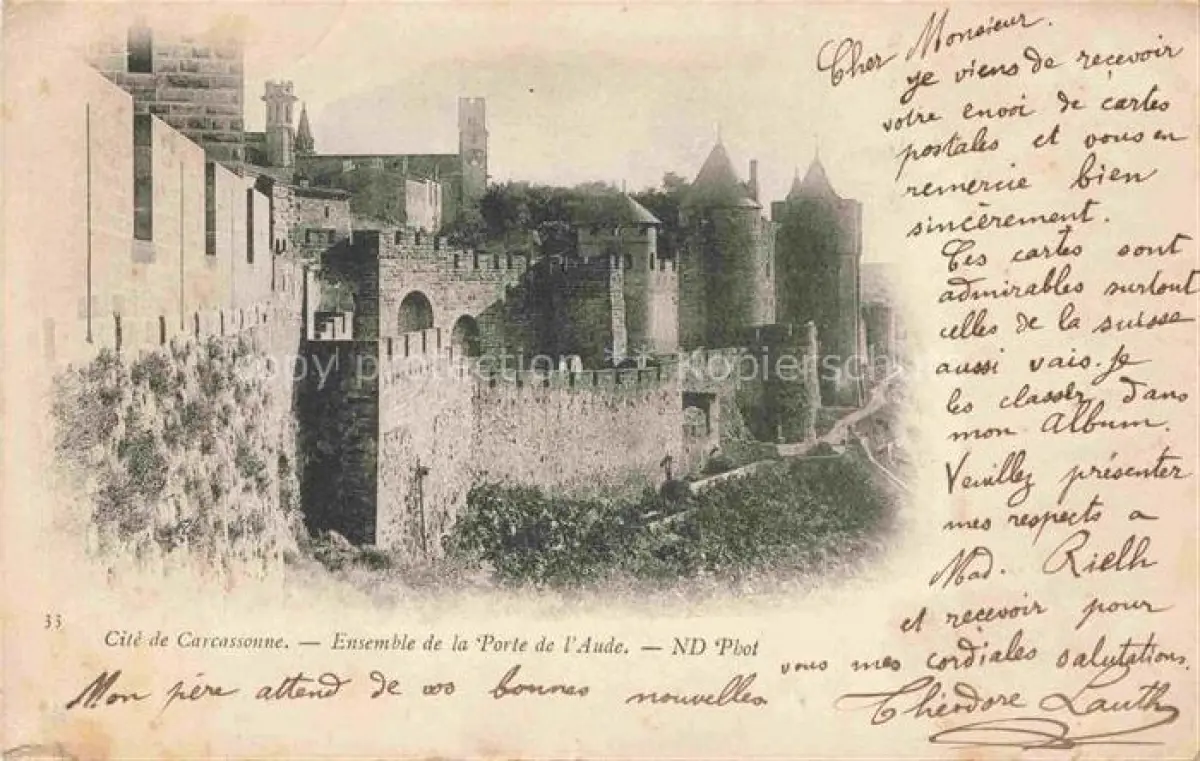 Cher Monsieur.
je viens de recevoir
votre envoi de cartes
postales et vous en
remercie bien
sincèrement.
Ces cartes sont
admirables surtout
celles de la suisse
aussi vais-je
les classer dans
mon Album.
Veuillez présenter
mes respects a
Mad. Rielh
et recevoir pour
vous mes cordiales salutations.
Théodore Lauth
33
Cité de Carcassonne. — Ensemble de la Porte de l'Aude. — ND Phot
Mon père attend de vos bonnes nouvelles
Copyright Kopierschutz